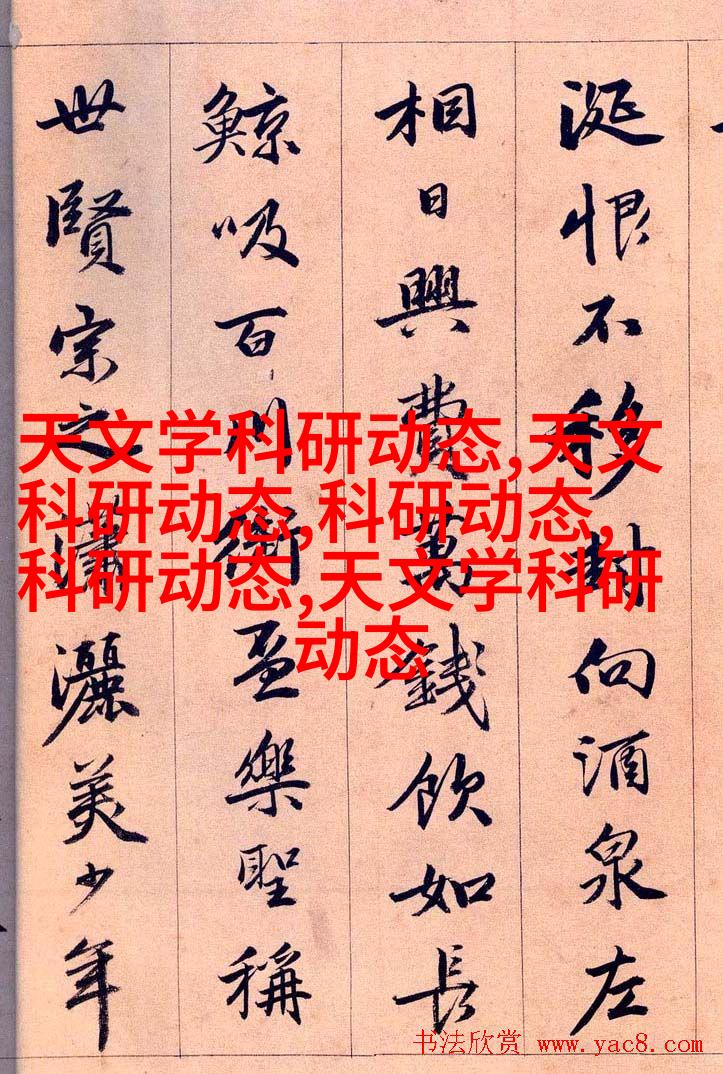 涎恨不移封向酒泉左
相日興費萬錢飲如長
鯨吸百川銜盃樂聖稱
世賢宗之瀟灑美少年
天文学科研动态,天文
科研动态,科研动态,
科研动态,天文学科研
动态
书法欣赏 www.yac8.com